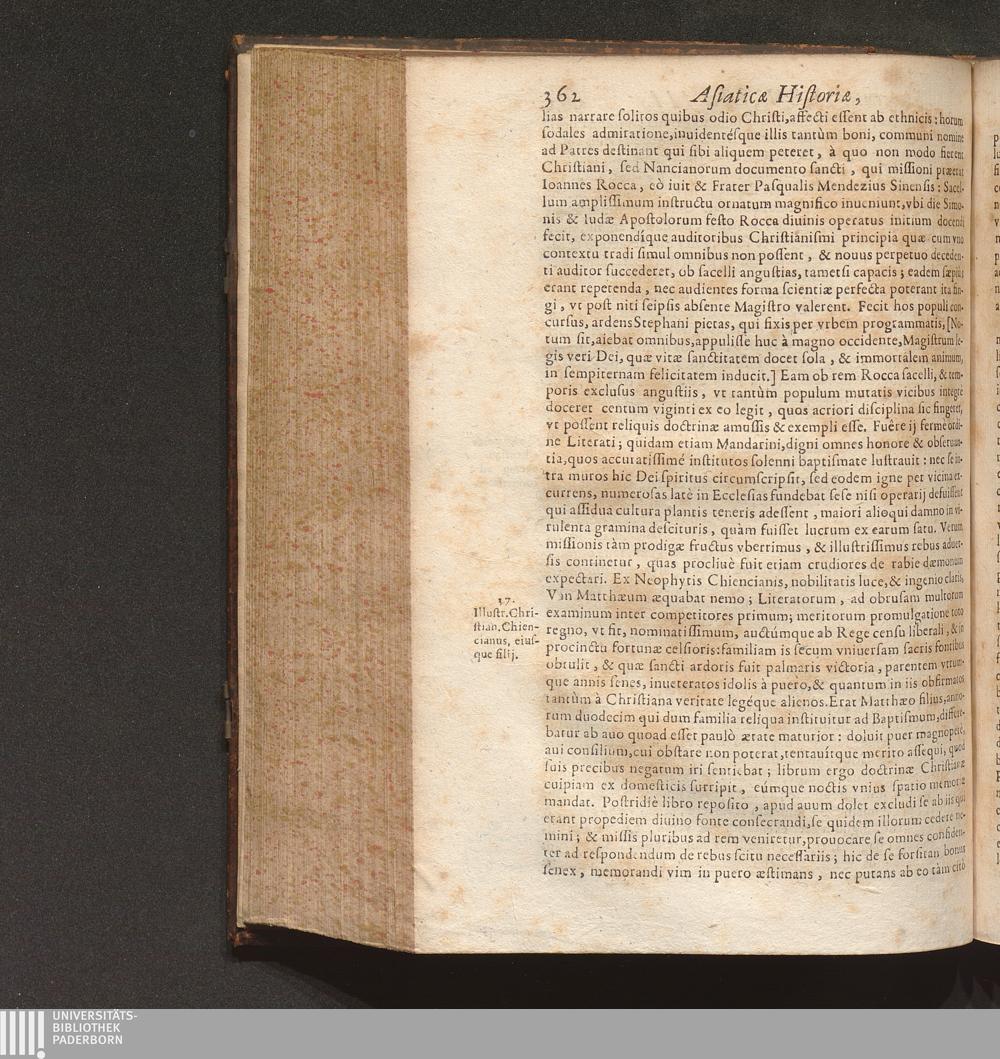 362 Aſiaticæ Hiſtoriæ,
lias narrare ſolitos quibus odio Chriſti,affecti eſſent ab ethnicis : horum
ſodales admiratione,inuidentéſque illis tantùm boni, communi nomine
ad Patres deſtinant qui ſibi aliquem peteret, à quo non modo fierent
Chriſtiani, ſed Nancianorum documento ſancti, qui miſſioni præerat
Ioannes Rocca, eò iuit & Frater Paſqualis Mendezius Sinenſis : Sacel-
lum ampliſſimum inſtructu ornatum magnifico inueniunt,vbi die Simo-
nis & Iudæ Apoſtolorum feſto Rocca diuinis operatus initium docendi
fecit, exponendíque auditoribus Chriſtianiſmi principia quæ cum vno
contextu tradi ſimul omnibus non poſſent, & nouus perpetuo deceden-
ti auditor ſuccederet, ob ſacelli anguſtias, tametſi capacis ; eadem ſæpiùs
erant repetenda, nec audientes forma ſcientiæ perfecta poterant ita fin-
gi, vt poſt niti ſeipſis abſente Magiſtro valerent. Fecit hos populi con-
curſus, ardens Stephani pietas, qui fixis per vrbem programmatis, [No-
tum ſit,aiebat omnibus,appuliſſe huc à magno occidente,Magiſtrum le-
gis veri Dei, quæ vitæ ſanctitatem docet ſola, & immortalem animum,
in ſempiternam felicitatem inducit.] Eam ob rem Rocca ſacelli, & tem-
poris excluſus anguſtiis, vt tantùm populum mutatis vicibus integrè
doceret centum viginti ex eo legit, quos acriori diſciplina ſic fingeret,
vt poſſent reliquis doctrinæ amuſſis & exempli eſſe. Fuêre ij ferme ordi-
ne Literati ; quidam etiam Mandarini,digni omnes honore & obſeruan-
tia,quos accuratiſſimé inſtitutos ſolenni baptiſmate luſtrauit : nec ſe in-
tra muros hic Dei ſpiritus circumſcripſit, ſed eodem igne per vicina ex-
currens, numeroſas latè in Eccleſias fundebat ſeſe niſi operarij defuiſſent
qui aſſidua cultura plantis teneris adeſſent, maiori alioqui damno in vi-
rulenta gramina deſcituris, quàm fuiſſet lucrum ex earum ſatu. Verum
miſſionis tàm prodigæ fructus vberrimus, & illuſtriſſimus rebus aduer-
ſis continetur, quas procliuè fuit etiam crudiores de rabie dæmonum
expectari. Ex Neophytis Chiencianis, nobilitatis luce,& ingenio claris,
Van Matthæum æquabat nemo ; Literatorum, ad obruſam multorum
examinum inter competitores primum; meritorum promulgatione toto
regno, vt fit, nominatiſſimum, auctúmque ab Rege cenſu liberali, & in
procinctu fortunæ celſioris:familiam is ſecum vniuerſam ſacris fontibus
obtulit, & quæ ſancti ardoris fuit palmaris victoria, parentem vtrum-
que annis ſenes, inueteratos idolis à puero,& quantum in iis obfirmatos
tantùm à Chriſtiana veritate legéque alienos. Erat Matthæo filius,anno-
rum duodecim qui dum familia reliqua inſtituitur ad Baptiſmum,differe-
batur ab auo quoad eſſet paulò ætate maturior : doluit puer magnopere,
aui conſilium,cui obſtare non poterat,tentauítque merito aſſequi, quod
ſuis precibus negatum iri ſentiebat ; librum ergo doctrinæ Chriſtianæ
cuipiam ex domeſticis ſurripit, eúmque noctis vnius ſpatio memoriæ
mandat. Poſtridiè libro repoſito, apud auum dolet excludi ſe ab iis qui
erant propediem diuino fonte conſecrandi,ſe quidem illorum cedere ne-
mini ; & miſſis pluribus ad rem veniretur,prouocare ſe omnes confiden-
ter ad reſpondendum de rebus ſcitu neceſſariis ; hic de ſe forſitan bonus
ſenex, memorandi vim in puero æſtimans, nec putans ab eo tàm citò
37.
Illuſtr. Chri-
ſtian. Chien-
cianus, eiuſ-
que filij.
UNIVERSITÄTS-
BIBLIOTHEK
PADERBORN